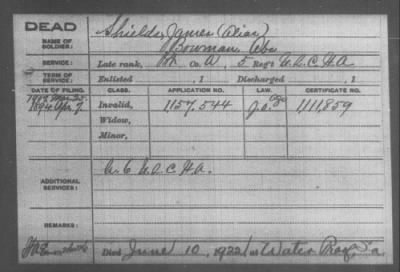 DEAD
NAME OF SOLDIER: Shields, James (Alias)
Bowman, Wm
SERVICE: Late rank, Pvt Co. A, 5 Reg't U.S.C.H.A
TERM OF SERVICE: Enlisted , 1 Discharged , 1
DATE OF FILING. CLASS. APPLICATION NO. LAW. CERTIFICATE NO.
1894 Apr 7 Invalid, 1157.544 1,111,859
Widow,
Minor,
ADDITIONAL SERVICES: U.S.C.H.A.
REMARKS:
Died June 10, 1922, at Water Proof, La